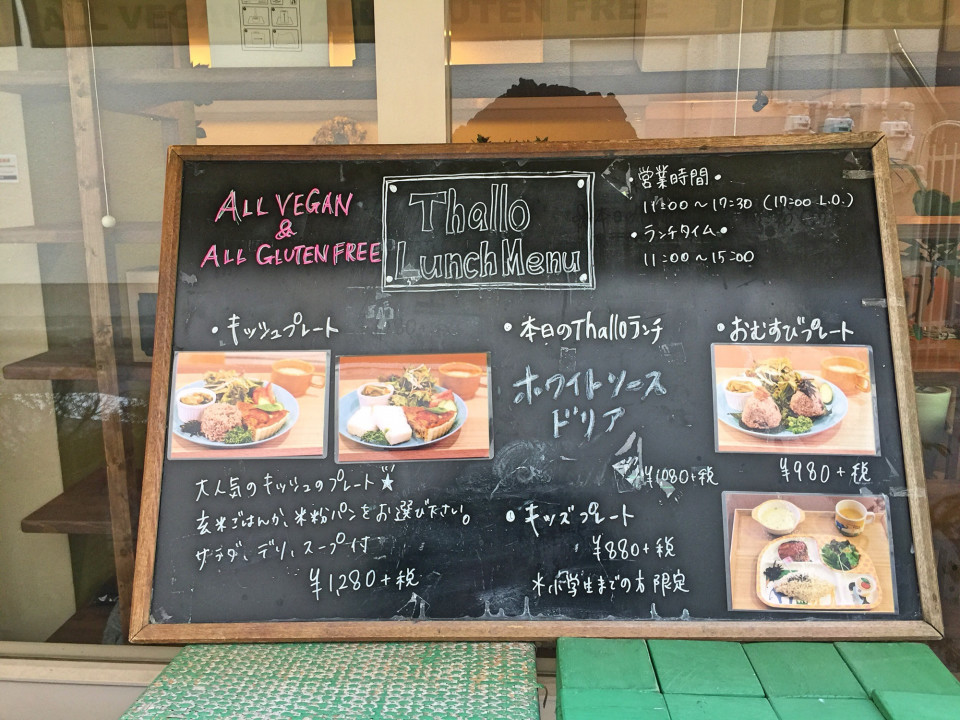 ALL VEGAN
&
ALL GLUTEN FREE
Thallo
Lunch Menu
・営業時間・
11:00〜17:30 (17:00 L.O.)
・ランチタイム・
11:00〜15:00
・キッシュプレート
大人気のキッシュのプレート★
玄米ごはんか、米粉パンをお選び下さい。
サラダ、デリ、スープ付
¥1,280+税
・本日のThalloランチ
ホワイトソース
ドリア
¥1,080+税
・おむすびプレート
¥980+税
・キッズプレート
¥880+税
※小学生までの方限定